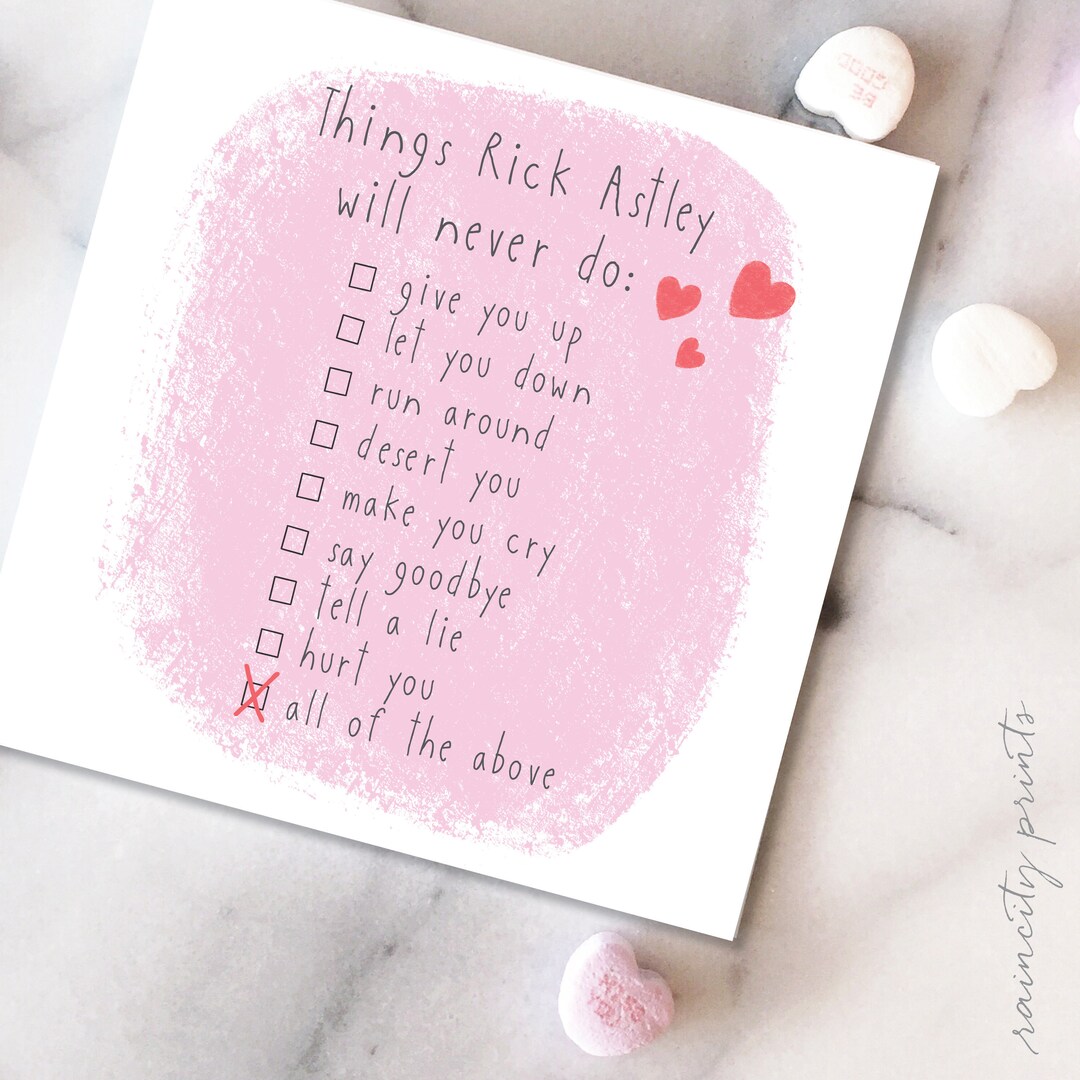 Things Rick Astley
will never do:
give you up
let you down
run around
desert you
make you cry
say goodbye
tell a lie
hurt you
all of the above
BE
COOL
raincity prints